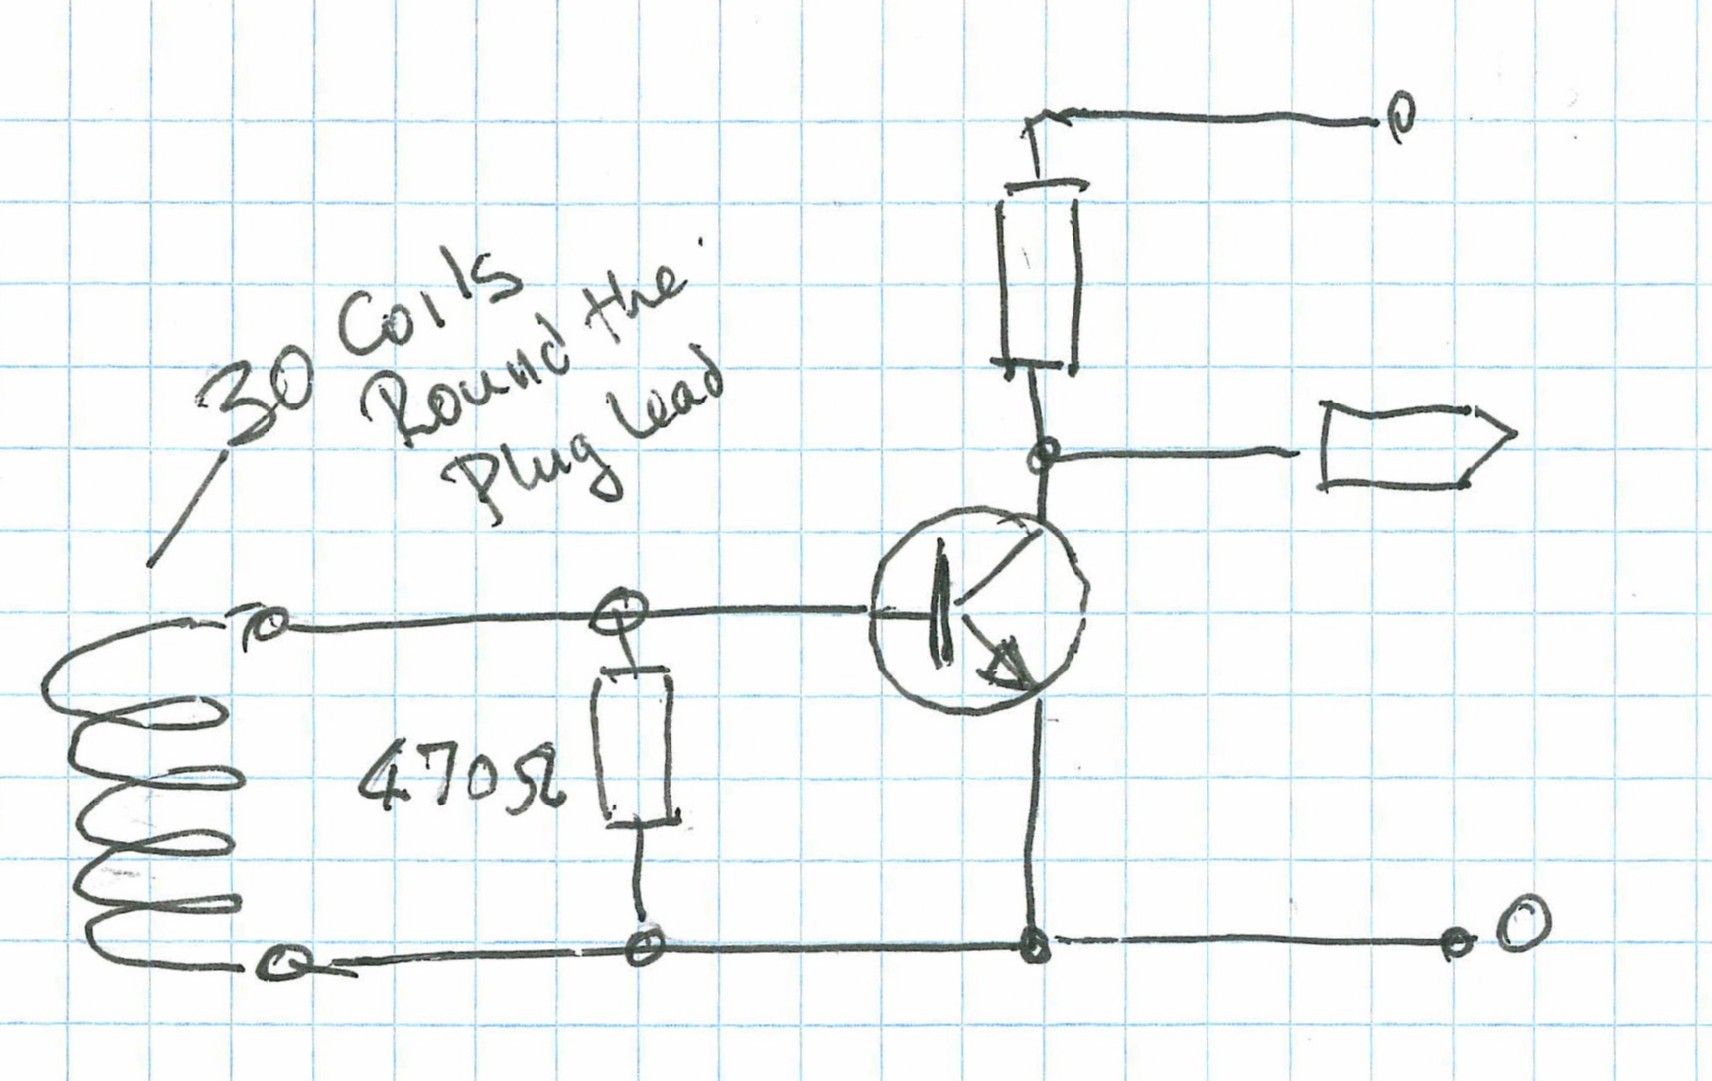 30 Coils
Round the
Plug Lead
470Ω
0